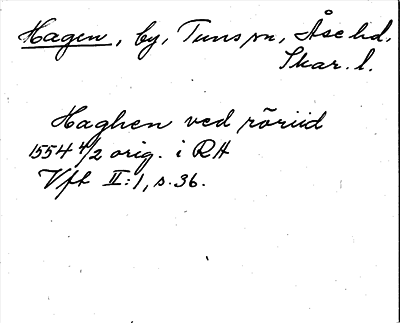 Hagen, by, Tuns sn, Åse hd,
Skar. l.
Haghen ved röriid
1554 4/2 orig. i RH
Vft II:1, s. 36.